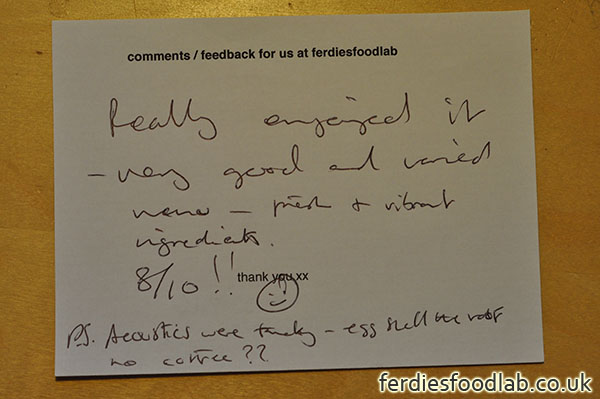 comments / feedback for us at ferdiesfoodlab
Really enjoyed it
- very good and varied
menu - fresh + vibrant
ingredients.
8/10!! thank you xx
P.S. Acoustics were - egg shell the roof
no coffee??
ferdiesfoodlab.co.uk